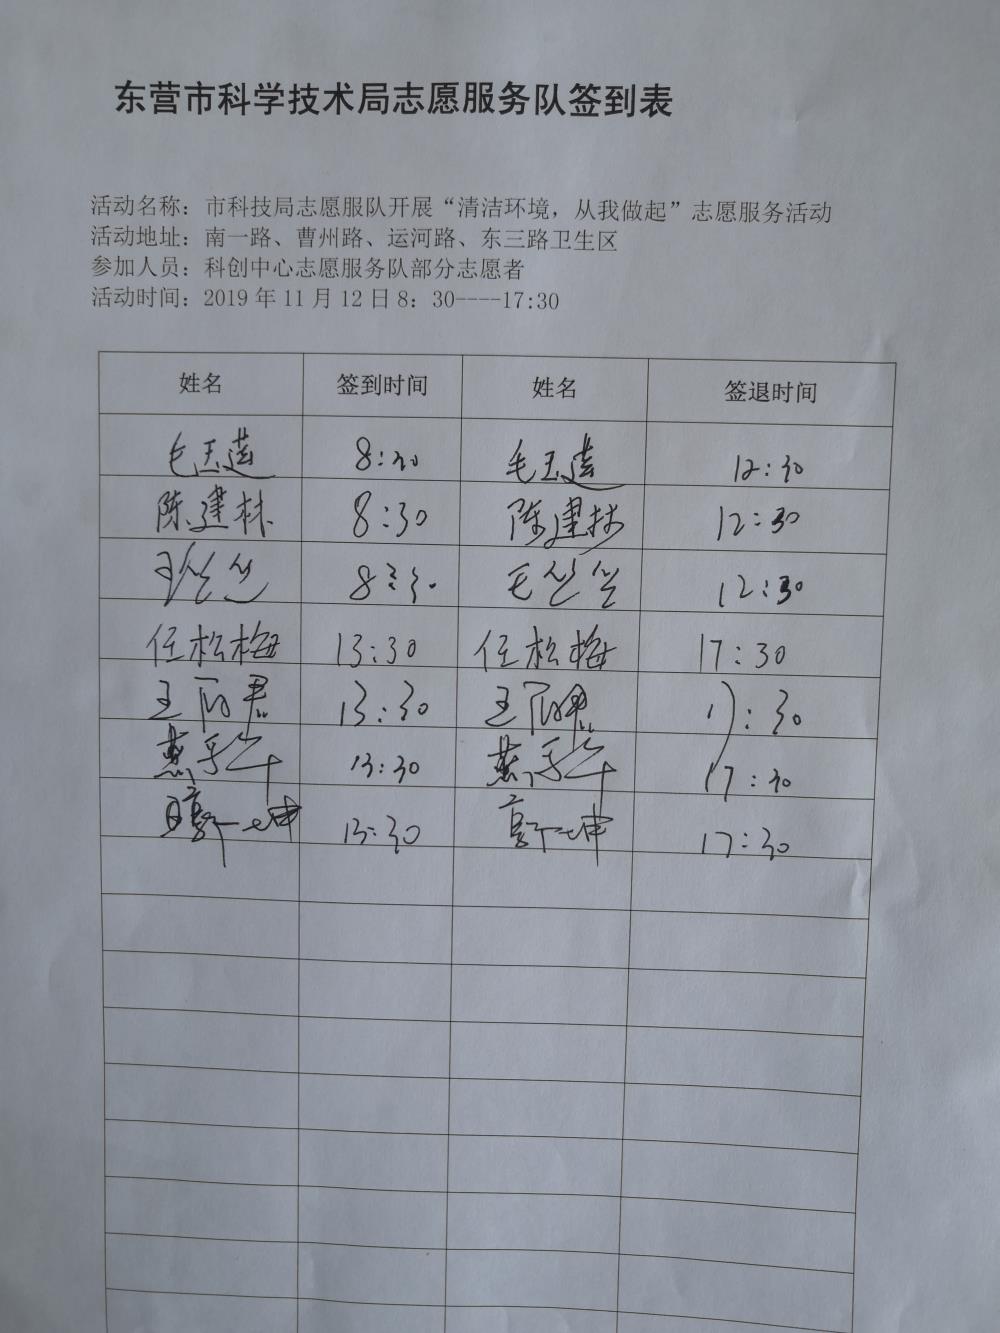 东营市科学技术局志愿服务队签到表
活动名称：市科技局志愿服队开展“清洁环境，从我做起”志愿服务活动
活动地址：南一路、曹州路、运河路、东三路卫生区
参加人员：科创中心志愿服务队部分志愿者
活动时间：2019 年 11 月 12 日 8：30----17:30
姓名 签到时间 姓名 签退时间
毛玉莲 8:30 毛玉莲 12:30
陈建林 8:30 陈建林 12:30
8:30 12:30
任松梅 13:30 任松梅 17:30
王丽君 13:30 王丽君 17:30
燕 13:30 燕 17:30
郭乾坤 13:30 郭乾坤 17:30